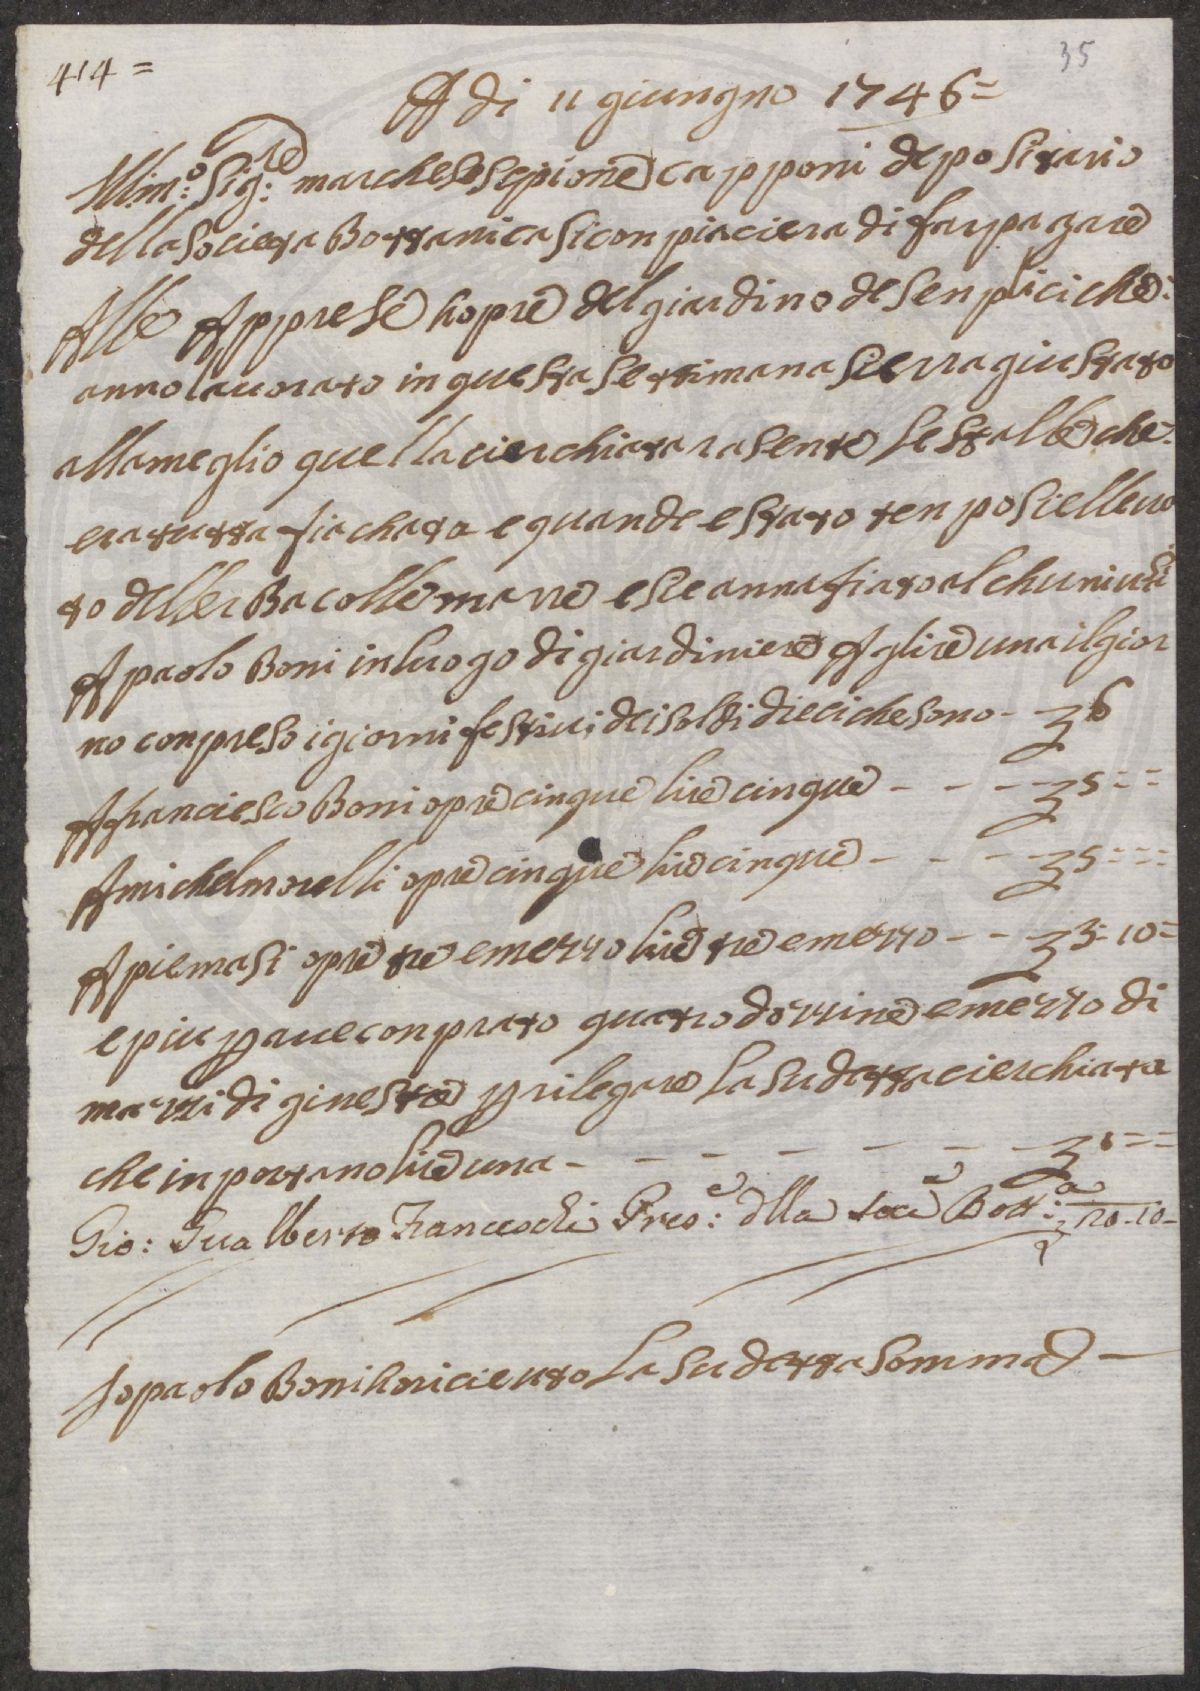 414 =
35
A di 11 giungno 1746 =
Illm:o Sig:re marchese sepione capponi depositario
della Societa Bottanica si conpiaciera di far pagare
Alle Apprese hopre del giardino de senplici che:
anno lavorato in questa settimana si e rragiustato
alla meglio quella cierchiata rasente le stalle che:
era tutta fiachata e quande e stato tenpo si elleva
to delle Bacolle marre e si e annafiato al chuni usi
A paolo Boni in luogo di giardiniere A lire una il gior
no conpreso i giorni festivi dei soldi dieci che sono - £ 6
A franciesco Boni opre cinque lire cinque - - - £ 5 = =
A michel morelli opre cinque lire cinque - - - £ 5 = = =
A pie masi opre tre e mezzo lire tre e mezzo - - £ 3 - 10 =
e piu p ave conprato quatro dozzine e mezzo di
mazzi di ginestre p rilegare la sudetta cierchiata
che inportano lire una - - - - - - - £ 1 = =
Gio: Gualberto Franceschi Pres:e dlla Soc:a Bott:a £ 20 - 10 -
Io paolo Boni ho riceuto la sudetta somma —